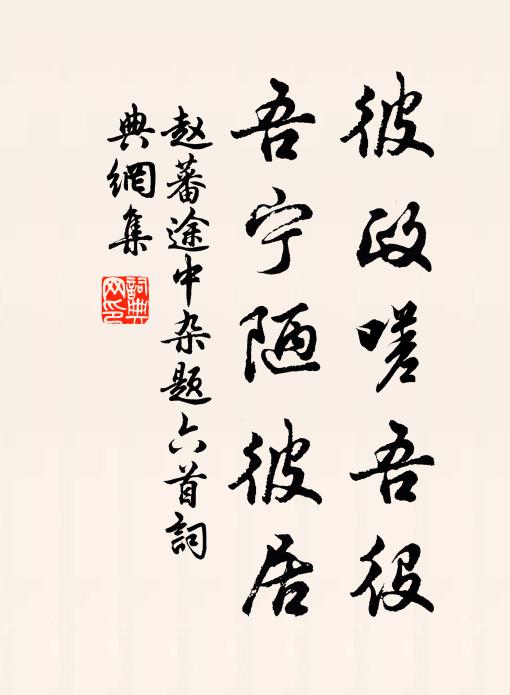 彼政嗟吾役
吾宁陋彼居
赵蕃途中杂题六首詞
典網集
詞典网印